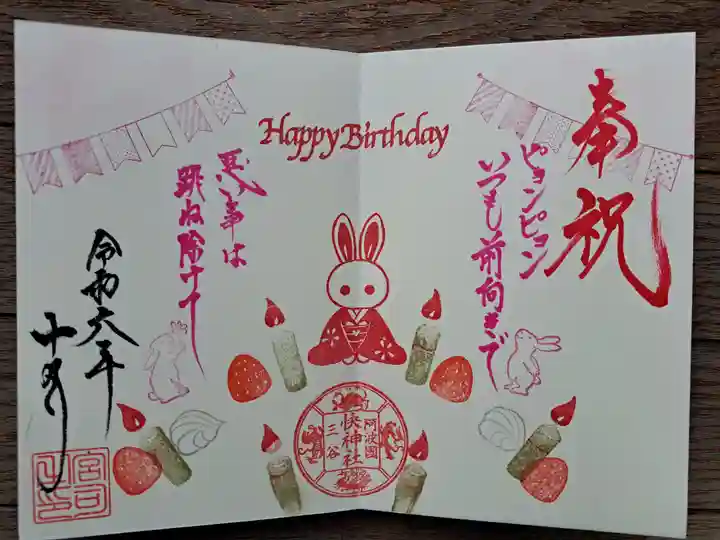 奉祝
Happy Birthday
ピョンピョン
いつも前向きで
悪い事は
跳ね除け
令和六年
十月
阿波國
快神社
三谷
宮司